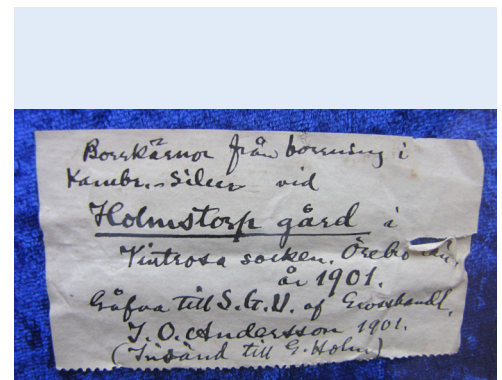 Borrkärnor från borrning i
Kambr.-Silur vid
Holmstorp gård i
Vintrosa socken, Örebro län,
år 1901.
Gåfva till S.G.U. af Grosshandl.
J. O. Andersson 1901.
(Insänd till G. Holm)